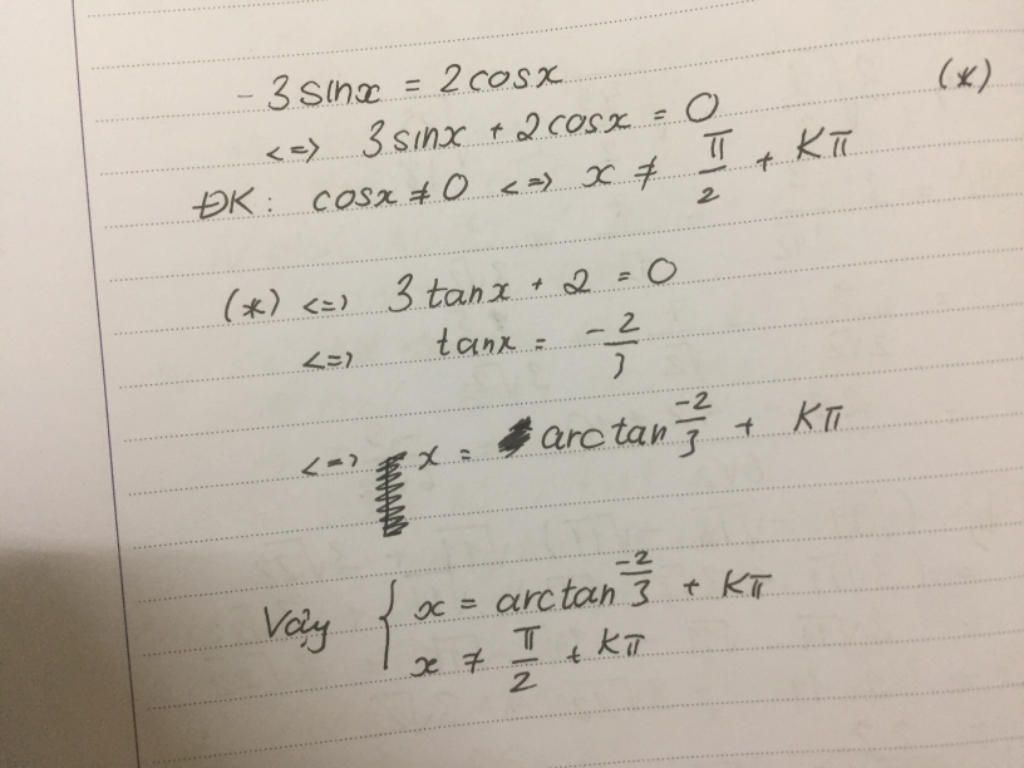 - 3 sinx = 2 cosx
<=> 3 sinx + 2 cosx = 0 (*)
ĐK: cosx ≠ 0 <=> x ≠ π/2 + Kπ
(*) <=> 3 tanx + 2 = 0
<=> tanx = -2/3
<=> x = arctan -2/3 + Kπ
Vậy { x = arctan -2/3 + Kπ
x ≠ π/2 + Kπ